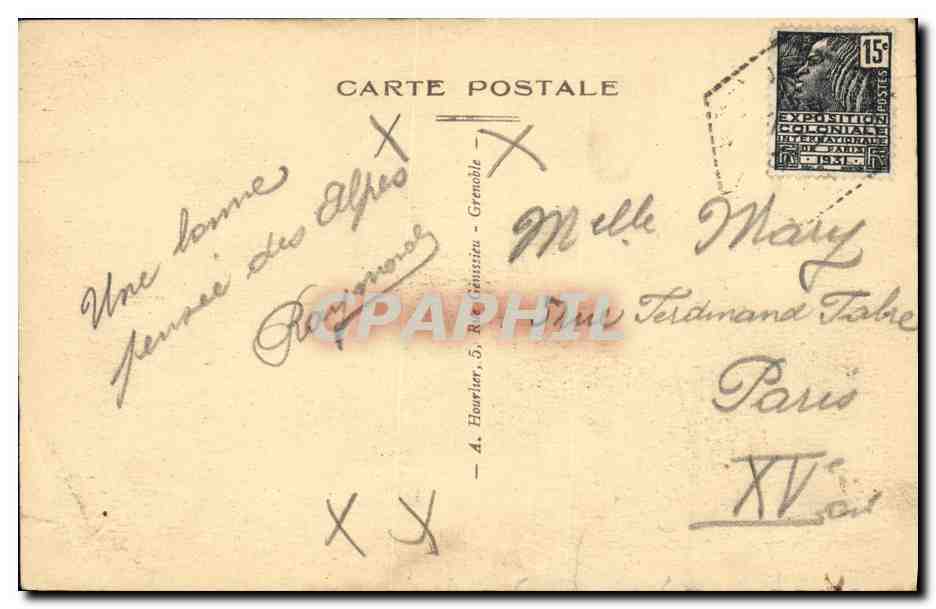 CARTE POSTALE
15c
POSTES
EXPOSITION
COLONIALE
INTERNATIONALE
DE PARIS
1931
Une bonne
pensée des Alpes
Raymond
A. Hourlier, 5, Rue Génissieu - Grenoble
Melle Mary
rue Ferdinand Fabre
Paris
XVe
CPAPHIL